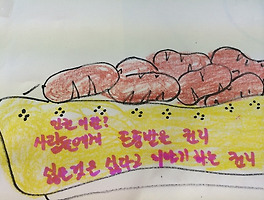 인권 이란?
사람들에게 존중받은 권리
싫은것은 싫다고 이야기 하는 권리